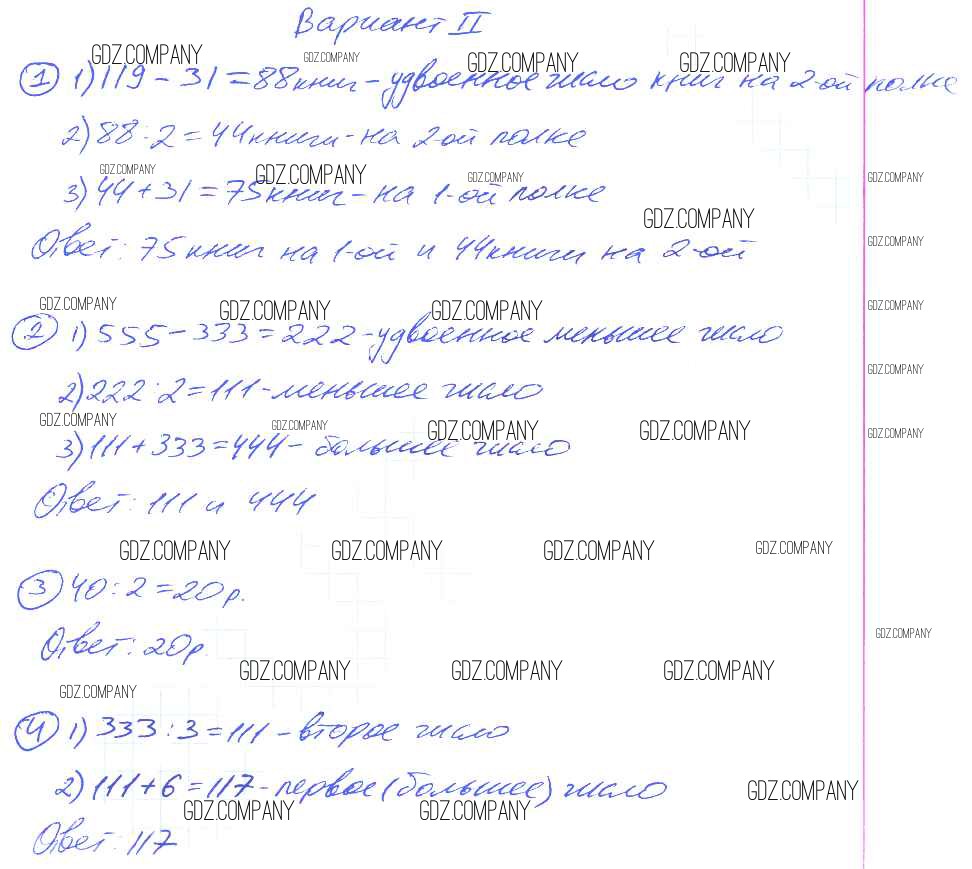 Вариант II
GDZ.COMPANY GDZ.COMPANY GDZ.COMPANY GDZ.COMPANY
1 1) 119 - 31 = 88 книг - удвоенное число книг на 2-ой полке
2) 88 : 2 = 44 книги - на 2-ой полке
GDZ.COMPANY GDZ.COMPANY GDZ.COMPANY GDZ.COMPANY
3) 44 + 31 = 75 книг - на 1-ой полке
GDZ.COMPANY
Ответ: 75 книг на 1-ой и 44 книги на 2-ой
GDZ.COMPANY
GDZ.COMPANY GDZ.COMPANY GDZ.COMPANY GDZ.COMPANY
2 1) 555 - 333 = 222 - удвоенное меньшее число
GDZ.COMPANY
2) 222 : 2 = 111 - меньшее число
GDZ.COMPANY GDZ.COMPANY GDZ.COMPANY GDZ.COMPANY GDZ.COMPANY
3) 111 + 333 = 444 - большее число
Ответ: 111 и 444
GDZ.COMPANY GDZ.COMPANY GDZ.COMPANY GDZ.COMPANY
3 40 : 2 = 20 р.
GDZ.COMPANY
Ответ: 20 р.
GDZ.COMPANY GDZ.COMPANY GDZ.COMPANY
GDZ.COMPANY
4 1) 333 : 3 = 111 - второе число
2) 111 + 6 = 117 - первое (большее) число
GDZ.COMPANY
GDZ.COMPANY GDZ.COMPANY
Ответ: 117